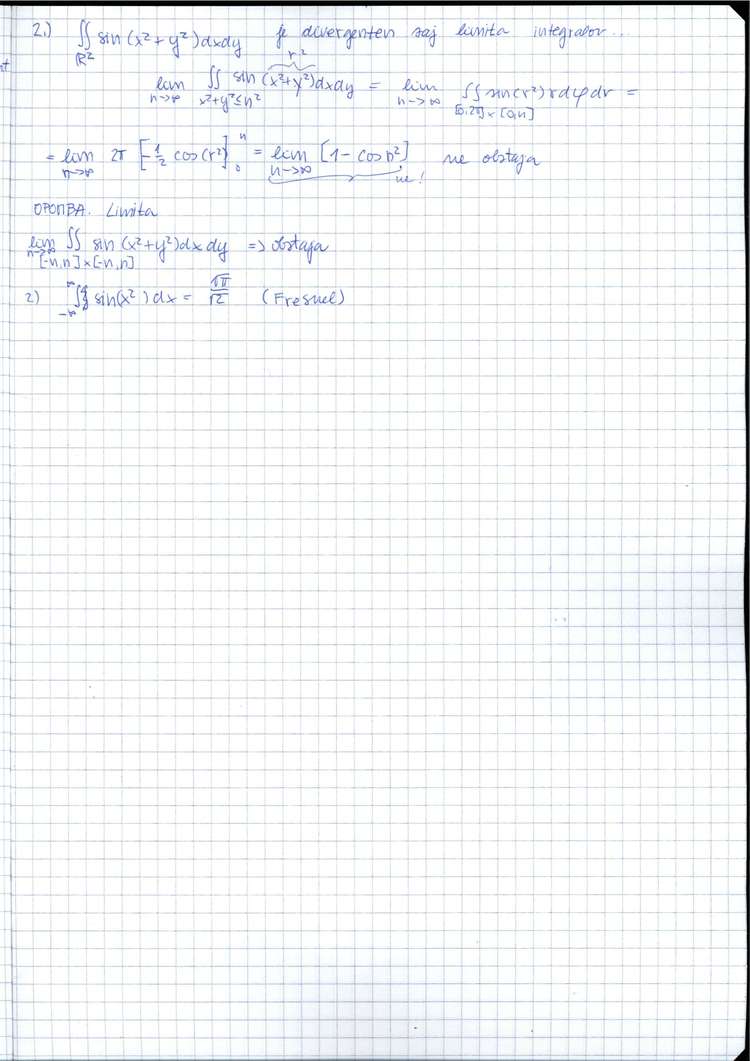 2.) ∬ℝ² sin(x²+y²)dxdy je divergenten saj limita integralov...
lim n→∞ ∬x²+y²≤n² sin(x²+y²)dxdy = lim n→∞ ∬[0,2π]×[0,n] sin(r²)rdφdr =
r²
= lim n→∞ 2π [-1/2 cos(r²)]₀ⁿ = lim n→∞ [1-cosn²] ne obstaja
ne!
OPOMBA. Limita
lim n→∞ ∬[-n,n]×[-n,n] sin(x²+y²)dxdy => obstaja
2) ∫-∞^∞ sin(x²)dx = √π/√2 (Fresnel)